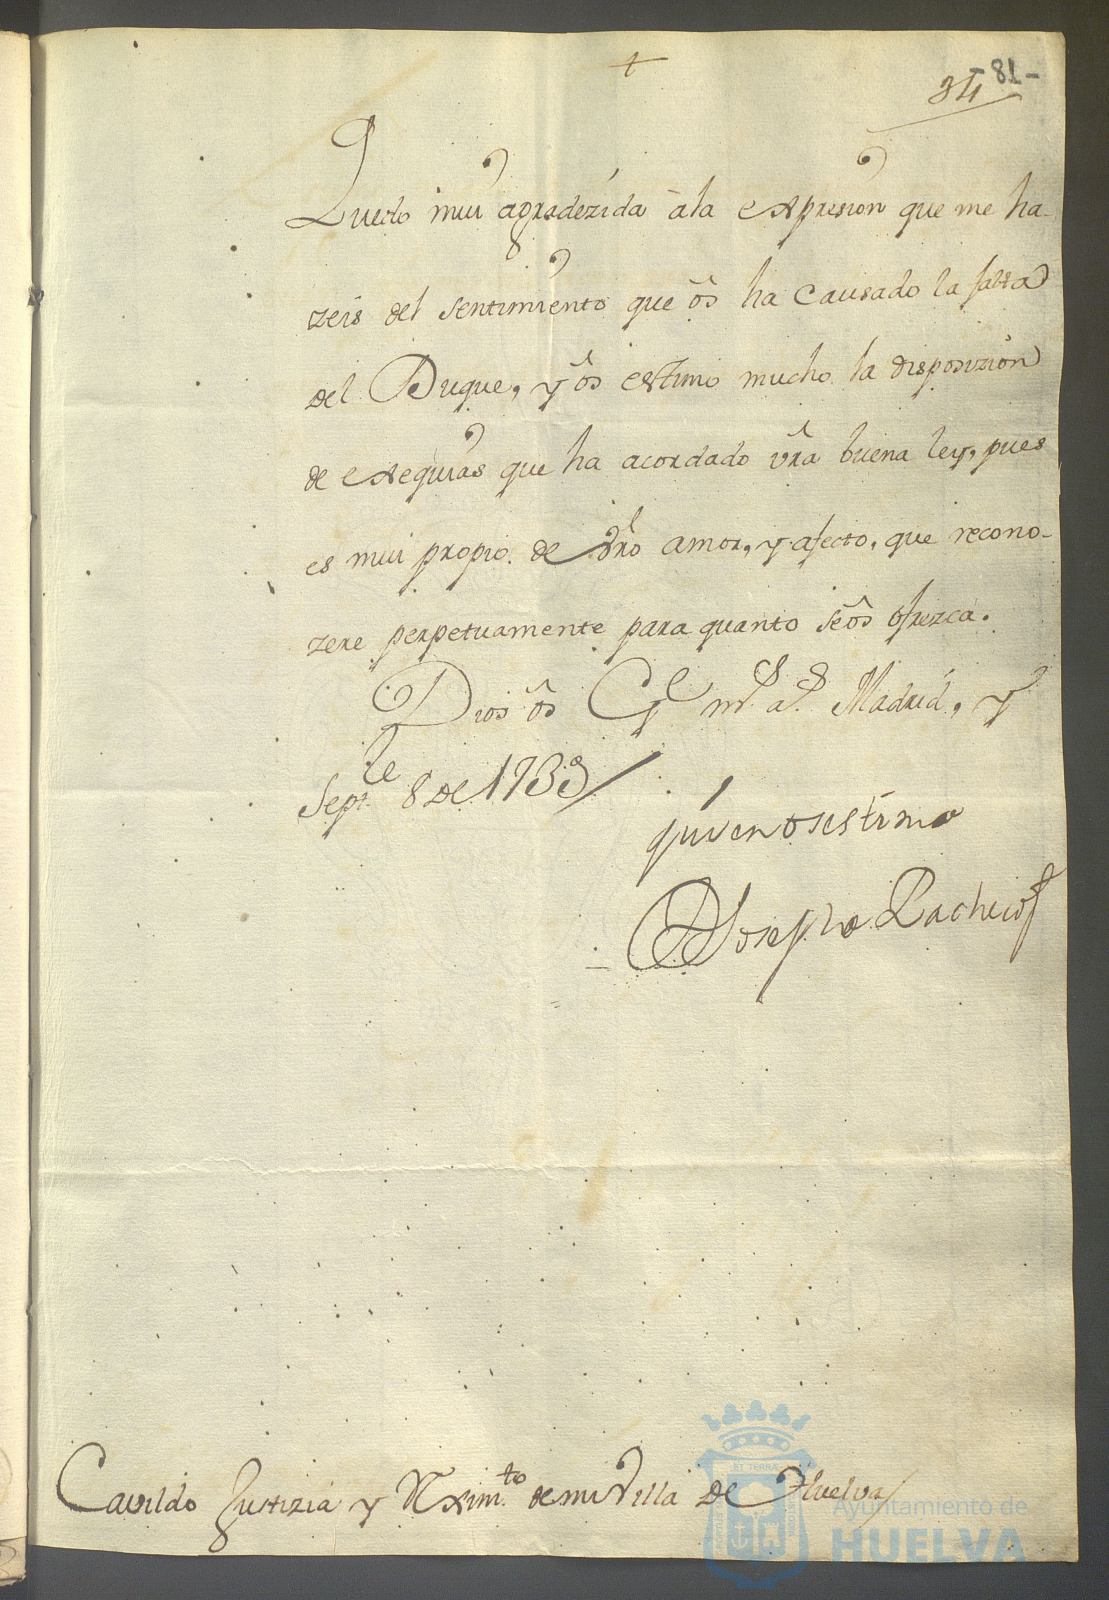 +
34 -81-
Quedo mui agradezida â la expresion que me ha-
zeis del sentimiento que ôs ha causado la falta
del Duque, y ôs estimo mucho la disposizion
de exequias que ha acordado vra buena ley, pues
es mui propio de vro amor, y afecto, que recono-
zere perpetuamente para quanto se ôs ofrezca.
Dios ôs Ge ms as. Madrid, y
Septre 8 de 1733
quien os estima
Josepha Pacheco
Cavildo Justizia y Rximto de mi Villa de Huelva
ET TERRA
Ayuntamiento de
HUELVA